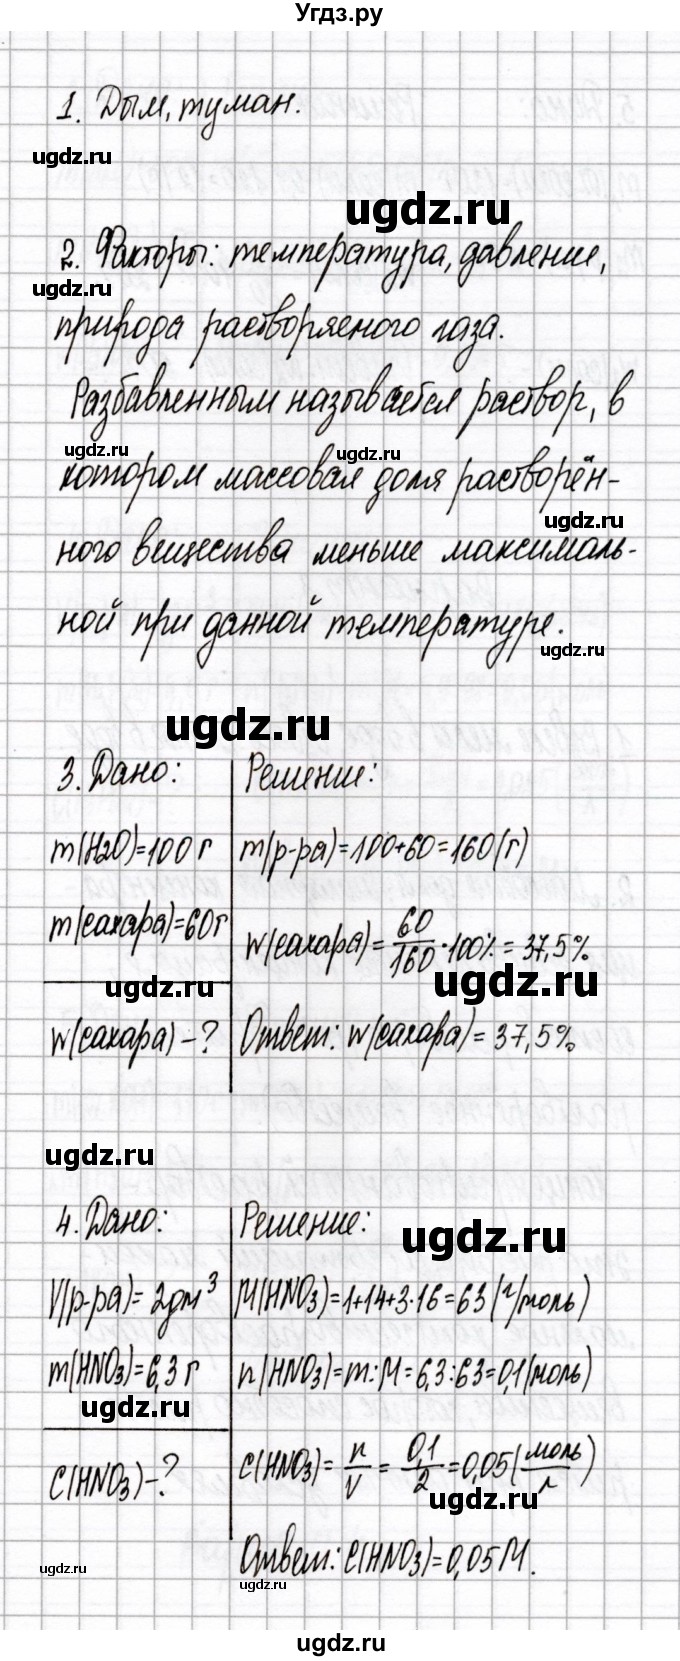 Угдз.ру
1. Дым, туман.
ugdz.ru
ugdz.ru
2. Факторы: температура, давление,
ugdz.ru
природа растворяемого газа.
Разбавленным называется раствор, в
ugdz.ru
ugdz.ru
котором массовая доля растворён-
ugdz.ru
ного вещества меньше максималь-
ной при данной температуре.
ugdz.ru
ugdz.ru
3. Дано:
m(H2O)=100 г
m(сахара)=60г
ugdz.ru
w(сахара) – ?
Решение:
m(р-ра)=100+60=160(г)
w(сахара) = 60/160 · 100% = 37,5%
ugdz.ru
Ответ: w(сахара) = 37,5%
ugdz.ru
4. Дано:
V(р-ра)= 2дм³
m(HNO3)=6,3 г
ugdz.ru
C(HNO3) – ?
Решение:
ugdz.ru
M(HNO3)=1+14+3·16=63 (г/моль)
n(HNO3)=m:M=6,3:63=0,1(моль)
C(HNO3)= n/V = 0,1/2 =0,05(моль/л)
ugdz.ru
Ответ: C(HNO3)=0,05М.
ugdz.ru
ugdz.ru
ugdz.ru